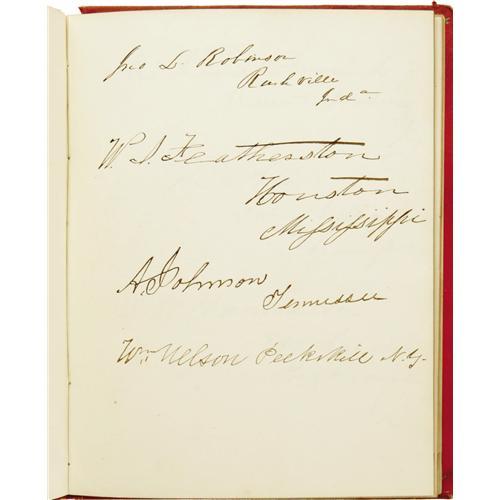 Jno L. Robinson
Rushville
Inda
W. S. Featherston
Houston
Mississippi
A. Johnson
Tennessee
Wm Nelson Peekskill N.Y.